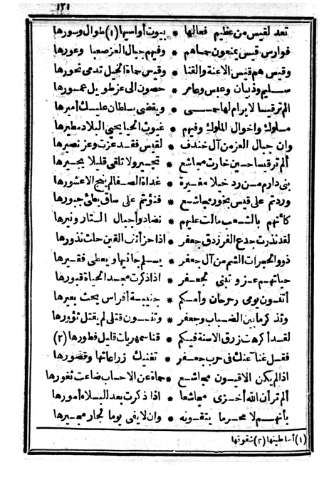 ١٢١
تعد لقيس من عظيم فعالها * بيوت أواسيها (١) طوال وسورها
فوارس قيس يمنعون حماهم * وفيهم جبال العز صعبا وعورها
وقيس هم قيس الاعنة والقنا * وقيس حماة الخيل تدمى نحورها
سليم وذبيان وعبس وعامر * حصون الى عز طويل عمورها
ألم تر قيسا لا يرام لها حمى * ويقضى بسلطان عليك أميرها
ملوك واخوال الملوك وفيهم * غيوث الحيا يحيى البلاد مطيرها
وان جبال العز من آل خندف * لقيس فقد عزت وعز نصيرها
ألم تر قيسا حين خارت مجاشع * تجير ولا تلقى قبيلا يجيرها
بنى دارم من رد خيلا مغيرة * غداة الصفا لم ينج الا عشورها
وردتم على قيس بخور مجاشع * فنؤتم على ساق بطئ جبورها
كأنهم بالشعب مالت عليهم * نضاد وأجبال الستار ونيرها
لقد نذرت جدع الفرزدق جعفر * اذا حز أنف القين حلت نذورها
ذوو الحجرات الشم من آل جعفر * يسلم جانيها ويعطى فقيرها
حياتهم عز وتبنى لجعفر * اذا ذكرت مجد الحياة قبورها
أتنسون يومى رحرحان وأمكم * جنيبة أفراس يخب بعيرها
وتذكر ما بين الضباب وجعفر * وتنسون قتلى لم يقتل ثؤورها
لقد أكرهت زرق الاسنة فيكم * قنا سمهريات قليل فطورها (٢)
فقل غناء عنك فى حرب جعفر * تغنيك زراعاتها وقصورها
اذا لم يكن الا قيون مجاشع * حماة عن الاحساب ضاعت ثغورها
ألم تر أن الله أخزى مجاشعا * اذا ذكرت بعد البلاء أمورها
بأنهم لا محرم يتقونه * وان لا يفى يوما لجار مجيرها
(١) أساطينها (٢) شقوقها